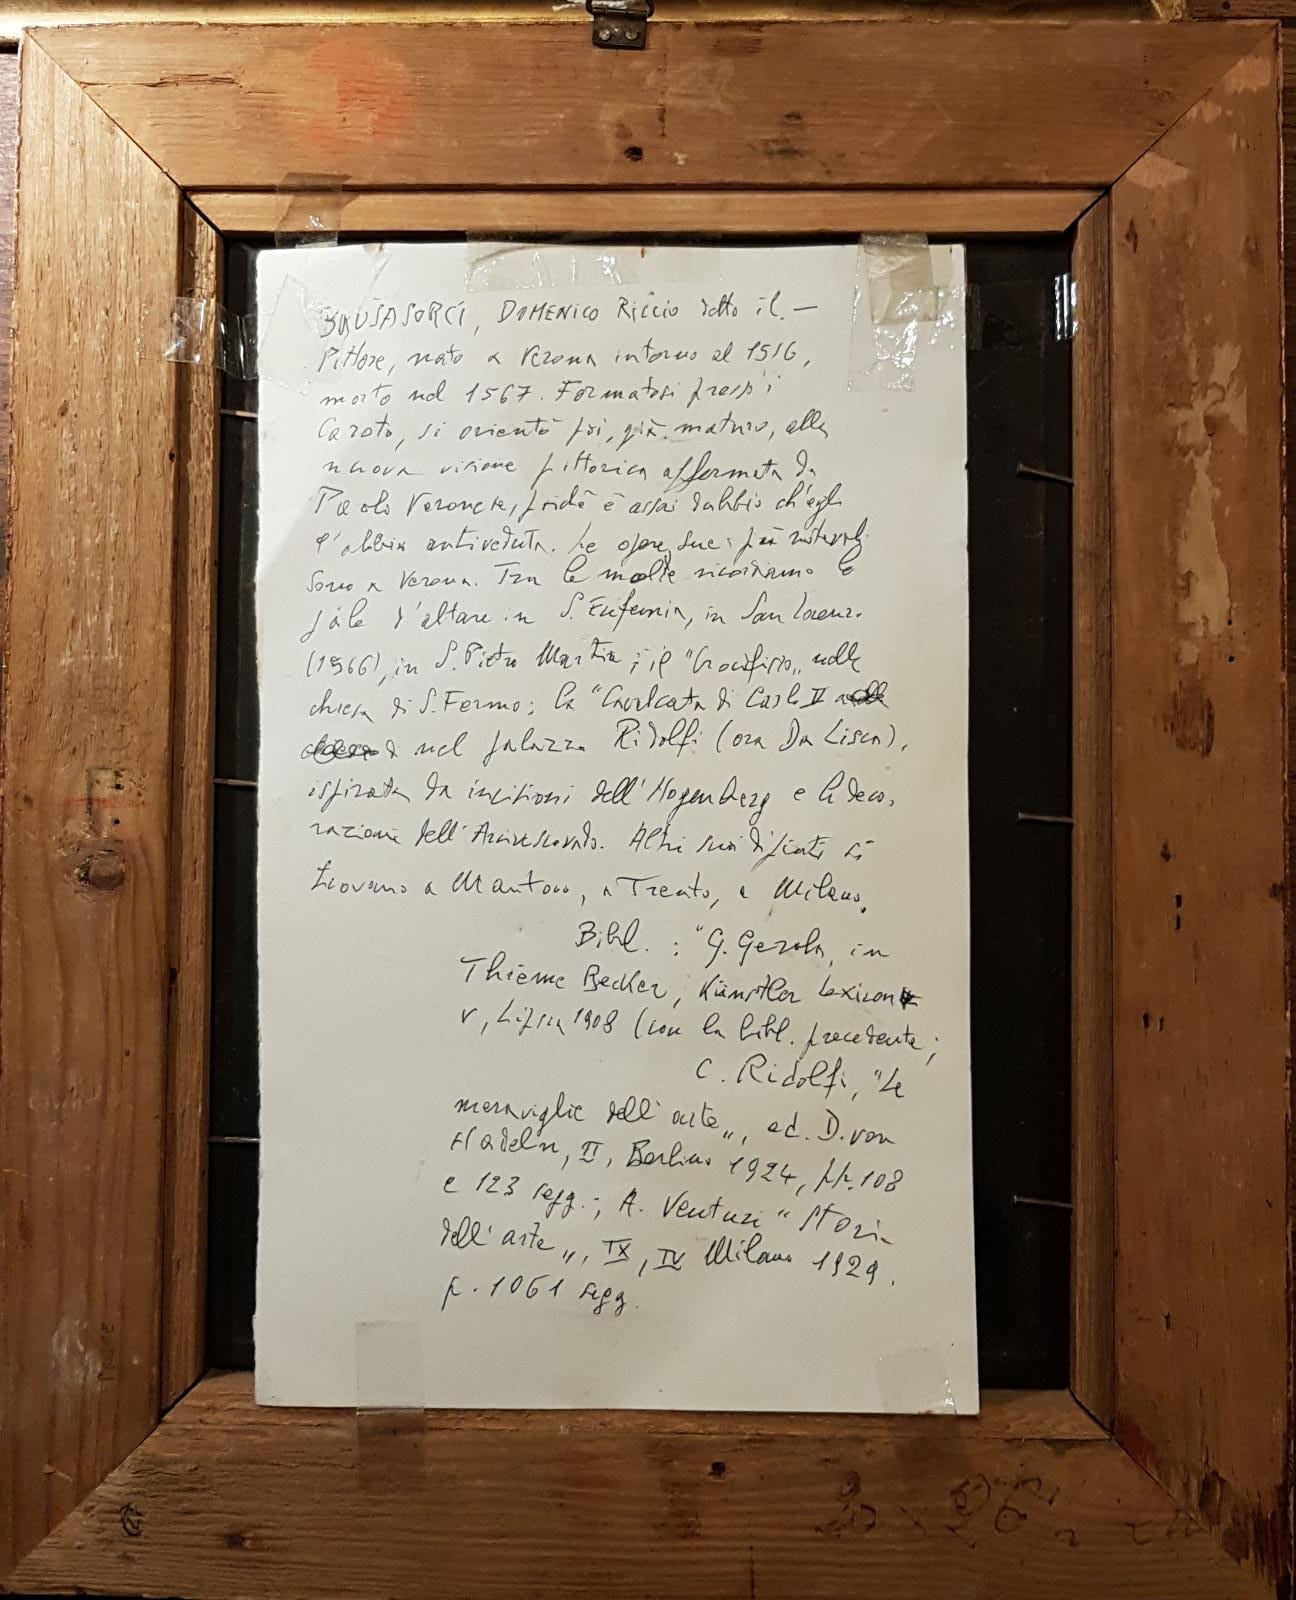 BRUSASORCI, DOMENICO RICCIO detto il. —
Pittore, nato a Verona intorno al 1516,
morto nel 1567. Formatosi press'i
Caroto, si orientò poi, già maturo, alla
nuova visione pittorica affermata da
Paolo Veronese, poichè è assai dubbio ch'egli
l'abbia antiveduta. Le opere sue più notevoli
sono a Verona. Tra le molte ricordiamo le
pale d'altare in S. Eufemia, in San Lorenzo
(1566), in S. Pietro Martire; il "Crocifisso„ nella
chiesa di S. Fermo; la "Cavalcata di Carlo V
nel palazzo Ridolfi (ora Da Lisca),
ispirata da incisioni dell'Hogenberg e la deco-
razione dell'Arcivescovado. Altri suoi dipinti si
trovano a Mantova, a Trento, a Milano.
Bibl. : "G. Gerola, in
Thieme Becker, Künstler Lexicon
V, Lipsia 1908 (con la bibl. precedente;
C. Ridolfi, "Le
meraviglie dell'arte„, ed. D. von
Hadeln, II, Berlino 1924, pp. 108
e 123 segg.; A. Venturi "Storia
dell'arte„, IX, IV Milano 1929.
p. 1061 segg.